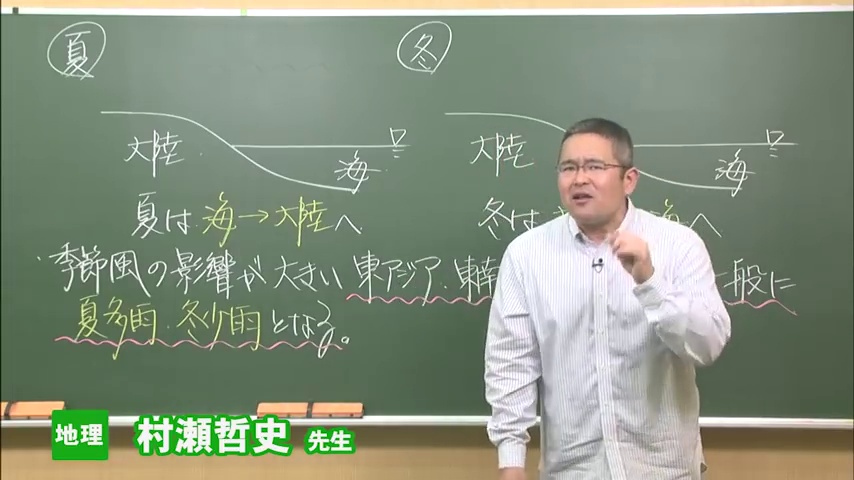 夏
冬
大陸
海
大陸
海
夏は 海→大陸へ
冬は 海へ
季節風の影響が 大きい 東アジア、東南 一般に
夏多雨、冬少雨となる。
地理 村瀬哲史 先生